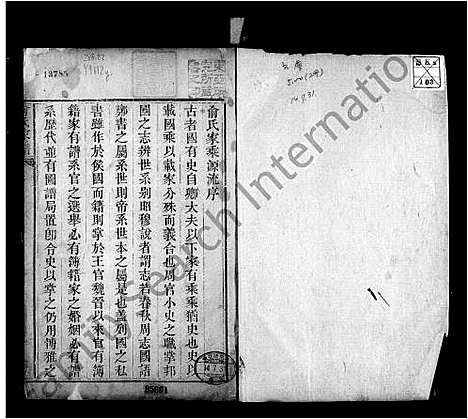 俞氏家乘源流序
古者國有史自卿大夫以下家有乘乘猶史也史以
載國乘以載家分殊而義合也周官小史之職掌邦
國之志辨世系別昭穆說者謂志若春秋周志國語
鄭書之屬系世則帝系世本之屬是也蓋列國之私
書雖作於侯國而籍則掌於王官魏晉以來官有簿
籍家有譜系官之選舉必有簿籍家之婚姻必有譜
系歷代並有圖譜局置郎令史以掌之仍用博雅之
13785
85681
FamilySearch International